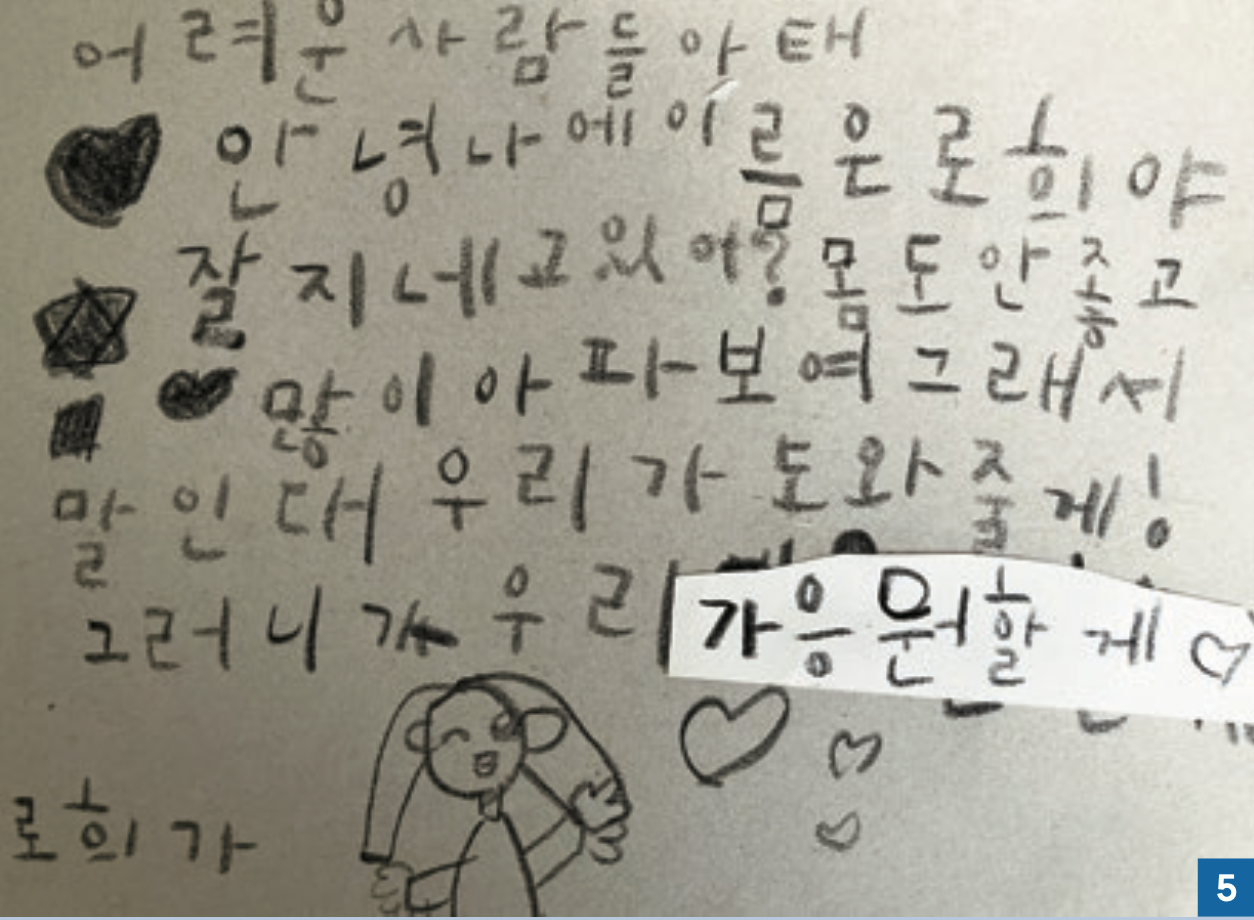 어려운 사람들아태
안녕 나에 이름은 로희야
잘 지네고 있어? 몸도 안 좋고
많이 아파 보여 그래서
말인대 우리가 도와줄게!
그러니가 우리가 응원할게
로희가
5